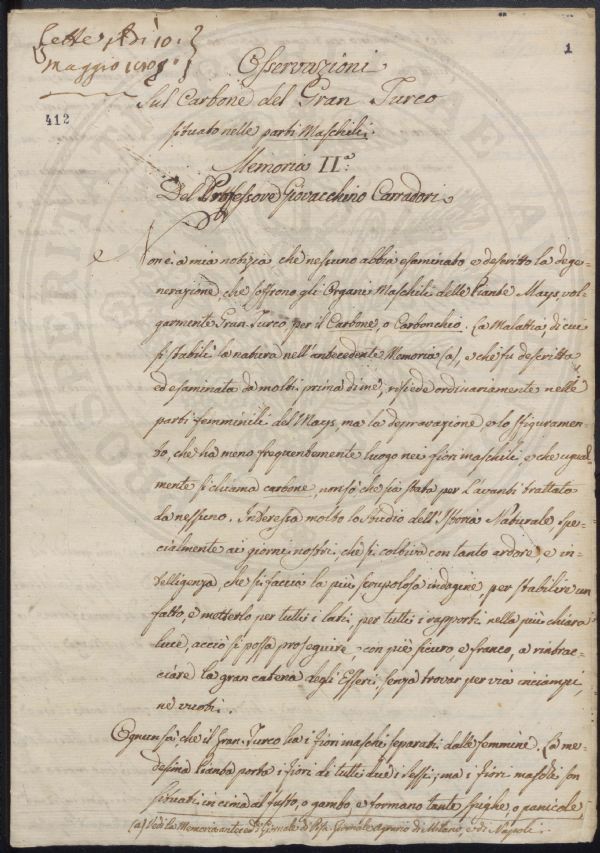 Lette Adi 10.
Maggio 1808
1
412
Osservazioni
Sul Carbone del Gran Turco
situato nelle parti Maschili.
Memoria IIa.
Del Professore Giovacchino Carradori.
Non è a mia notizia che nessuno abbia esaminato e descritto la dege=
nerazione, che soffrono gli Organi Maschili delle Piante Mays, vol=
garmente Gran-Turco per il Carbone, o Carbonchio. La Malattia, di cui
si stabilì la natura nell'antecedente Memoria (a), e che fu descritta
ed esaminata da molti prima di me, risiede ordinariamente nelle
parti femminili del Mays, ma la depravazione e lo sfiguramen=
to, che ha meno frequentemente luogo nei fiori maschili, e che ugual=
mente si chiama carbone, non so che sia stata per l'avanti trattata
da nessuno. Interessa molto lo Studio dell'Istoria Naturale spe=
cialmente ai giorni nostri, che si coltiva con tanto ardore, e in=
telligenza, che si faccia la più scrupolosa indagine, per stabilire un
fatto, e metterlo per tutti i lati, per tutti i rapporti nella più chiara
luce, acciò si possa proseguire con piè sicuro, e franco, a rintrac=
ciare la gran catena degli Esseri senza trovar per via inciampi,
nè vuoti.
Ognun sà, che il Gran-Turco ha i fiori maschi separati dalle femmine. La me=
desima pianta porta i fiori di tutti due i sessi; ma i fiori maschi son
situati in cima al fusto, o gambo, e formano tante spighe, o panicole
(a) Vedi la Memoria anteced. Giornale di Pisa. Giornale Agrario di Milano, e di Napoli.